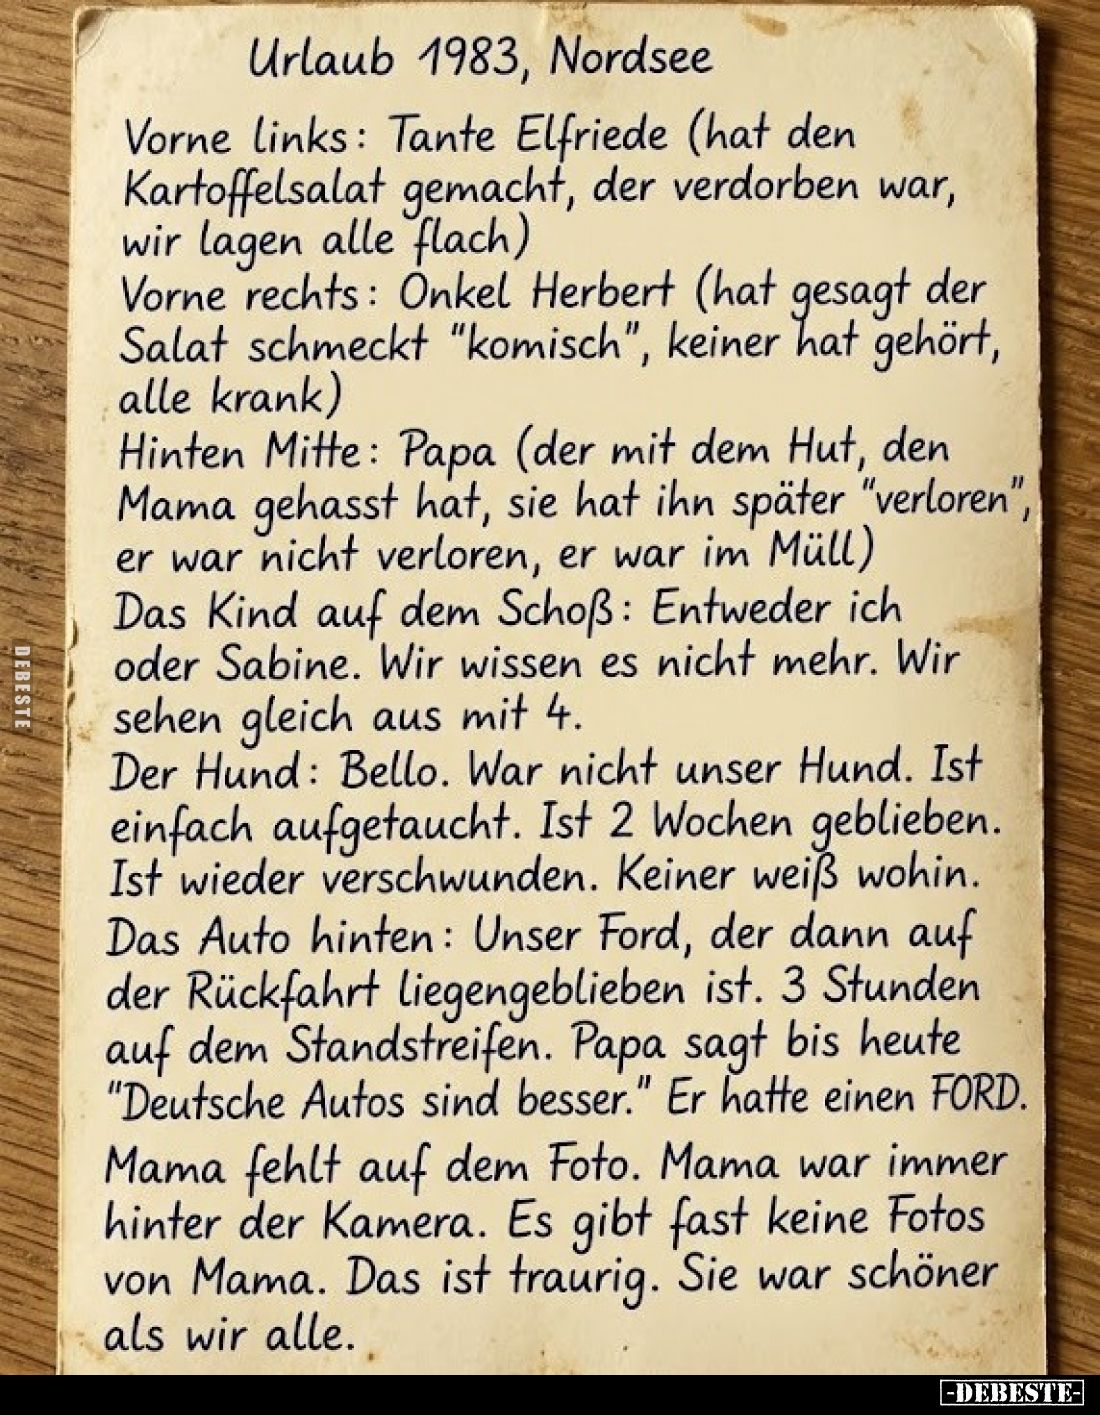 Urlaub 1983, Nordsee
Vorne links: Tante Elfriede (hat den
Kartoffelsalat gemacht, der verdorben war,
wir lagen alle flach)
Vorne rechts: Onkel Herbert (hat gesagt der
Salat schmeckt "komisch", keiner hat gehört,
alle krank)
Hinten Mitte: Papa (der mit dem Hut, den
Mama gehasst hat, sie hat ihn später "verloren",
er war nicht verloren, er war im Müll)
Das Kind auf dem Schoß: Entweder ich
oder Sabine. Wir wissen es nicht mehr. Wir
sehen gleich aus mit 4.
Der Hund: Bello. War nicht unser Hund. Ist
einfach aufgetaucht. Ist 2 Wochen geblieben.
Ist wieder verschwunden. Keiner weiß wohin.
Das Auto hinten: Unser Ford, der dann auf
der Rückfahrt liegengeblieben ist. 3 Stunden
auf dem Standstreifen. Papa sagt bis heute
"Deutsche Autos sind besser." Er hatte einen FORD.
Mama fehlt auf dem Foto. Mama war immer
hinter der Kamera. Es gibt fast keine Fotos
von Mama. Das ist traurig. Sie war schöner
als wir alle.
DEBESTE
-DEBESTE-